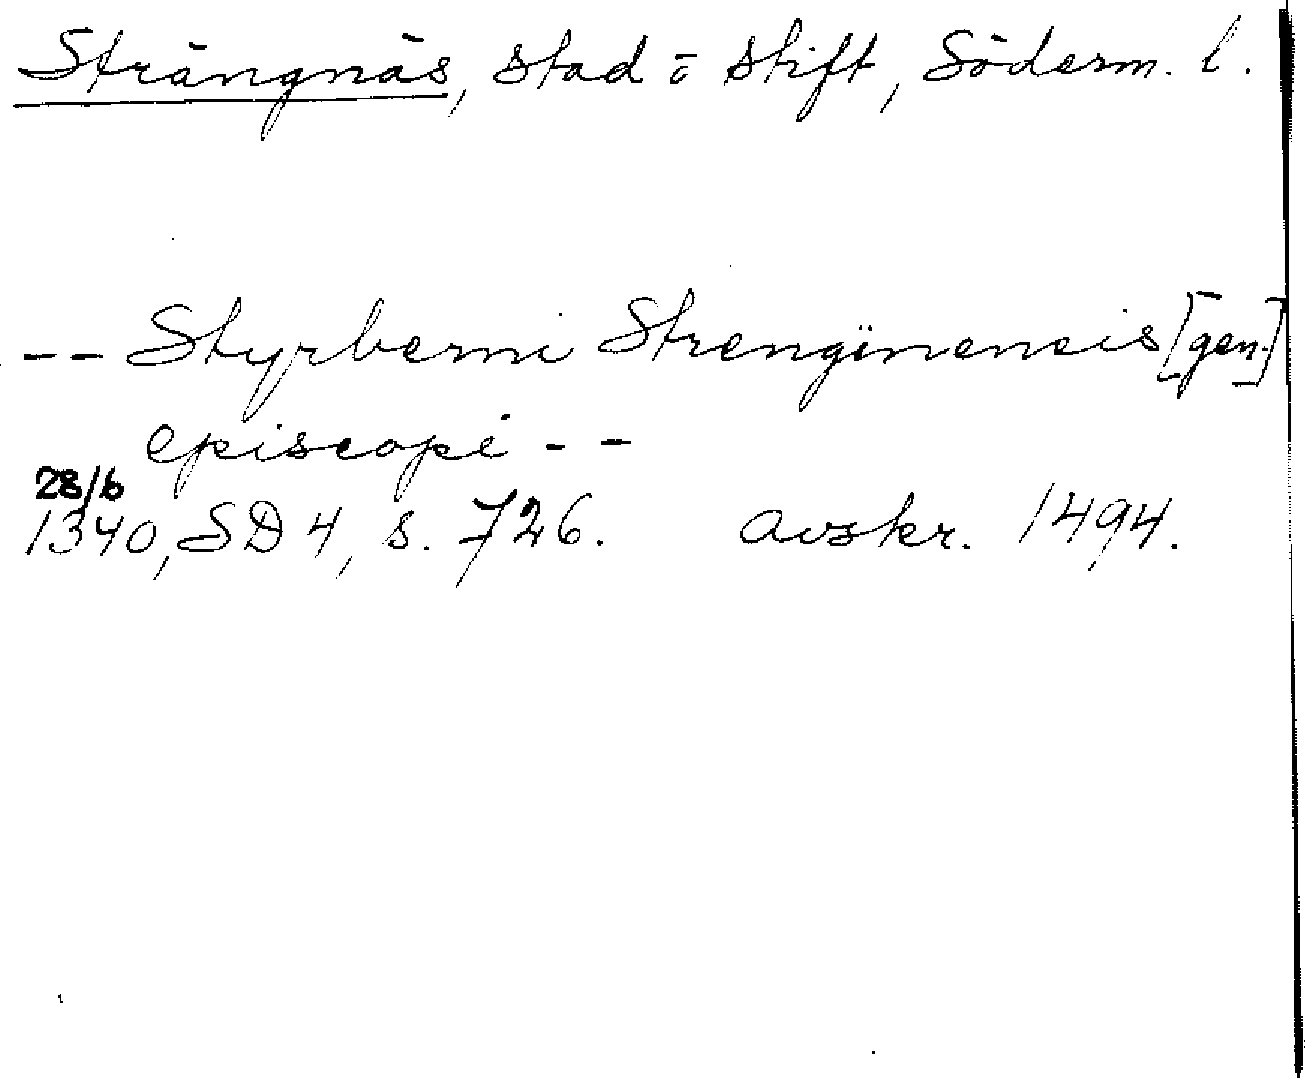 Strängnäs, stad o stift, Söderm. l.
-- Styrberni Strenginenesis [gen.]
episcopi --
28/6
1340, SD 4, s. 726. avskr. 1494.